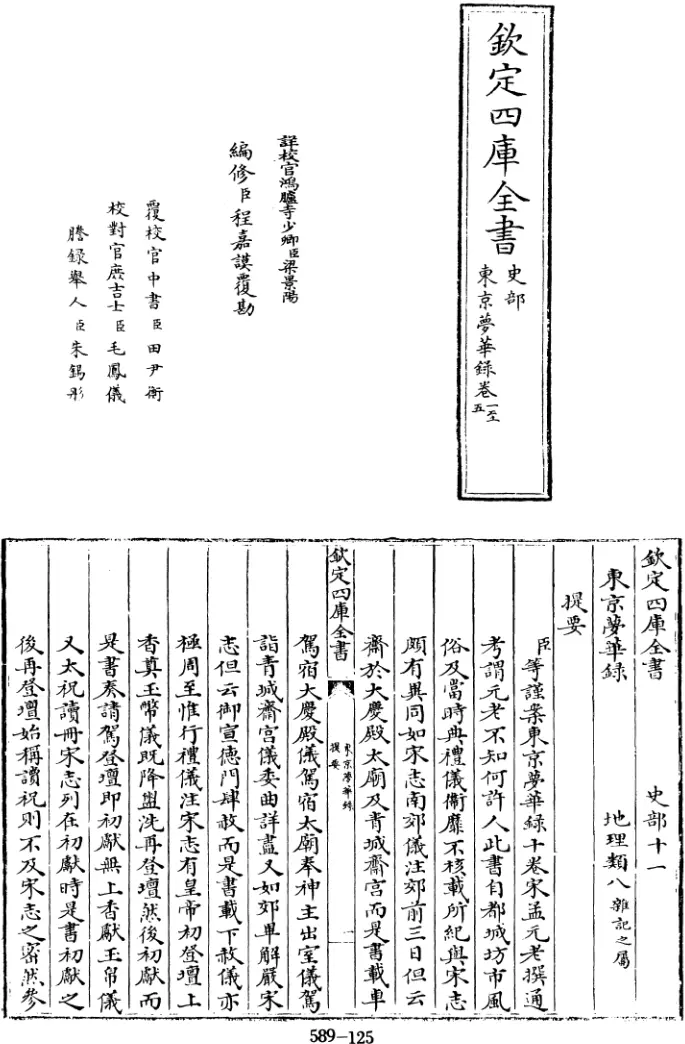 欽定四庫全書
史部
東京夢華錄卷一至五
詳校官鴻臚寺少卿臣梁景陽
編修臣程嘉謨覆勘
覆校官中書臣田尹衡
校對官庶吉士臣毛鳳儀
謄錄舉人臣朱錫彤
欽定四庫全書 史部十一
東京夢華錄 地理類八雜記之屬
提要
臣等謹案東京夢華錄十卷宋孟元老撰通
考謂元老不知何許人此書自都城坊市風
俗及當時典禮儀衛靡不核載所紀與宋志
頗有異同如宋志南郊儀注郊前三日但云
齋於大慶殿太廟及青城齋宮而是書載車
欽定四庫全書
東京夢華錄
提要
一
駕宿大慶殿儀駕宿太廟奉神主出室儀駕
詣青城齋宮儀委曲詳盡又如郊畢解嚴宋
志但云御宣徳門肆赦而是書載下赦儀亦
極周至惟行禮儀注宋志有皇帝初登壇上
香奠玉幣儀既降盥洗再登壇然後初獻而
是書奏請駕登壇即初獻無上香獻玉帛儀
又太祝讀冊宋志列在初獻時是書初獻之
後再登壇始稱讀祝則不及宋志之密然參
589-125